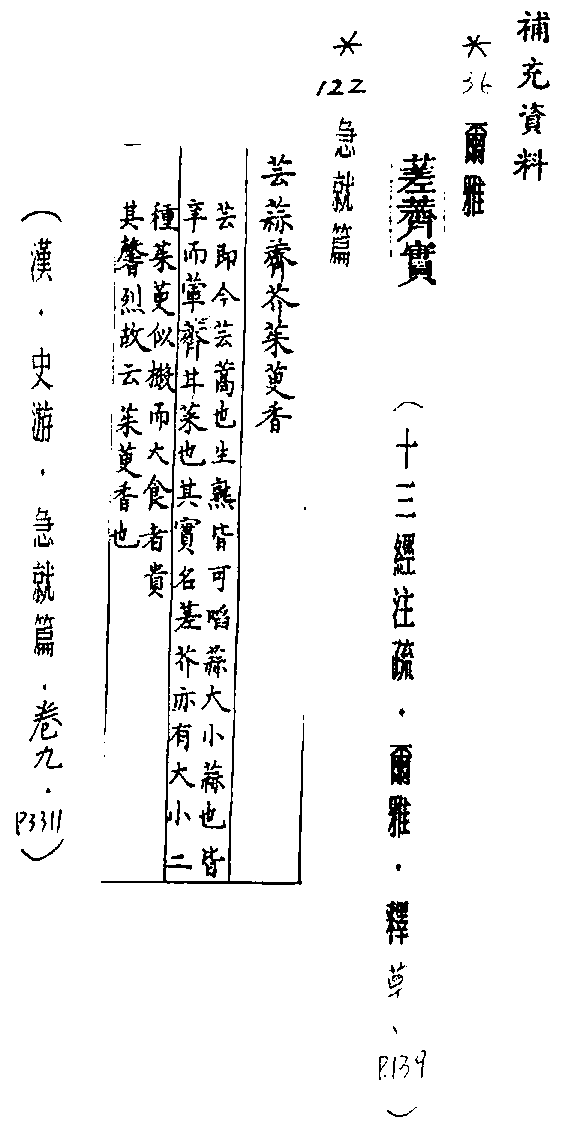 補充資料
*36 爾雅
蒫薺實
(十三經注疏.爾雅.釋草、P.139)
*122 急就篇
芸蒜薺芥茱萸香
芸即今芸蒿也生熟皆可啗蒜大小蒜也皆
辛而葷薺甘菜也其實名蒫芥亦有大小二
種茱萸似樧而大食者貴
其馨烈故云茱萸香也
(漢.史游.急就篇.卷九.P3311)